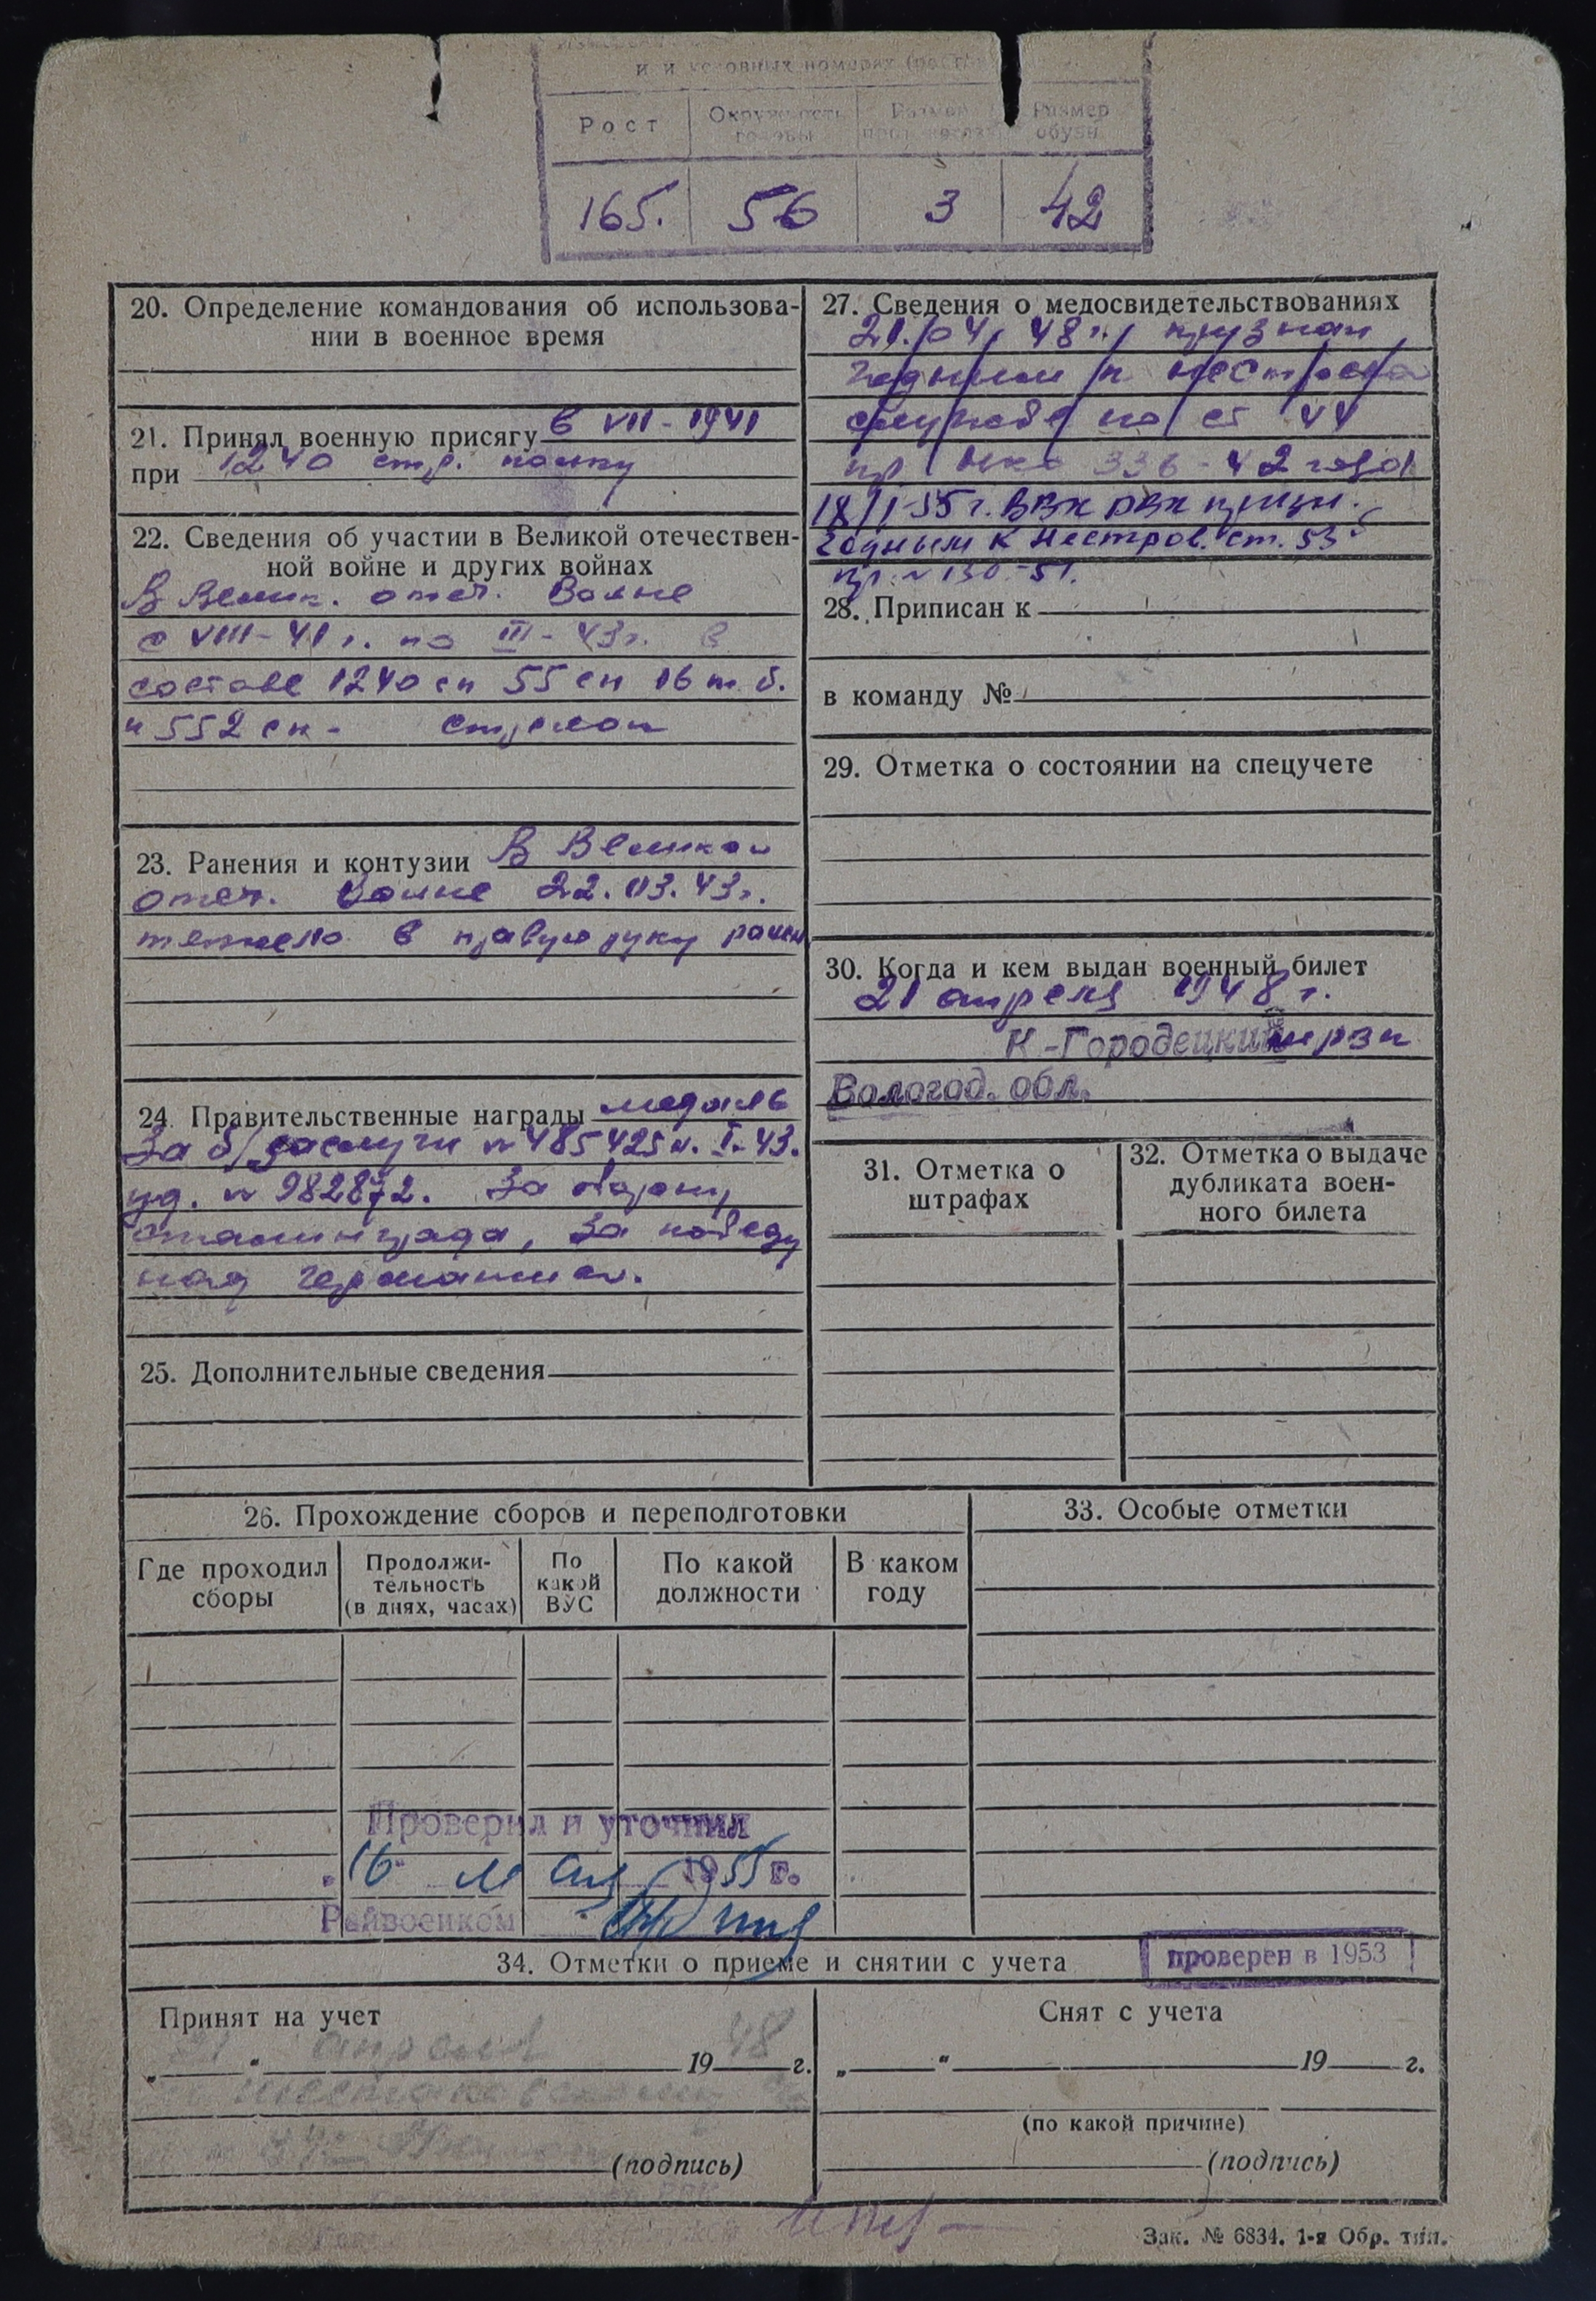 и условных номерах (рост)
Рост
Окружность головы
Размер
Размер обуви
165.
56
3
42
20. Определение командования об использова-
нии в военное время
21. Принял военную присягу в VII-1941
при 1240 стр. полку
22. Сведения об участии в Великой отечествен-
ной войне и других войнах
В Велик. отеч. Войне
с VIII-41 г. по III-43г. в
составе 1240 сп 55 сп 16 т. б.
и 552 сп - стрелок
23. Ранения и контузии В Великой
отеч. Войне 22.03.43г.
тяжело в правую руку ранен
24. Правительственные награды медаль
За б/заслуги № 485425 I-43.
уд. № 982872. За оборону
Сталинграда, За победу
над Германией.
25. Дополнительные сведения
26. Прохождение сборов и переподготовки
Где проходил сборы
Продолжи-
тельность
(в днях, часах)
По какой ВУС
По какой должности
В каком году
Проверил и уточнил
16 мая 1955 г.
Райвоенком
27. Сведения о медосвидетельствованиях
21/04/48 г. признан
годным к нестроевой
службе по ст 44
пр НКО 336-42 года
18/I-55 г. ВВК РВК призн.
годным к нестров. ст. 53
пр. № 130-51.
28. Приписан к
в команду №
29. Отметка о состоянии на спецучете
30. Когда и кем выдан военный билет
21 апреля 1948 г.
К-Городецким рвк
Вологод. обл.
31. Отметка о
штрафах
32. Отметка о выдаче
дубликата воен-
ного билета
33. Особые отметки
34. Отметки о приеме и снятии с учета
проверен в 1953
Принят на учет
„21“ апреля 1948 г.
(подпись)
Снят с учета
„ “ 19 г.
(по какой причине)
(подпись)
Зак. № 6834. 1-я Обр. тип.